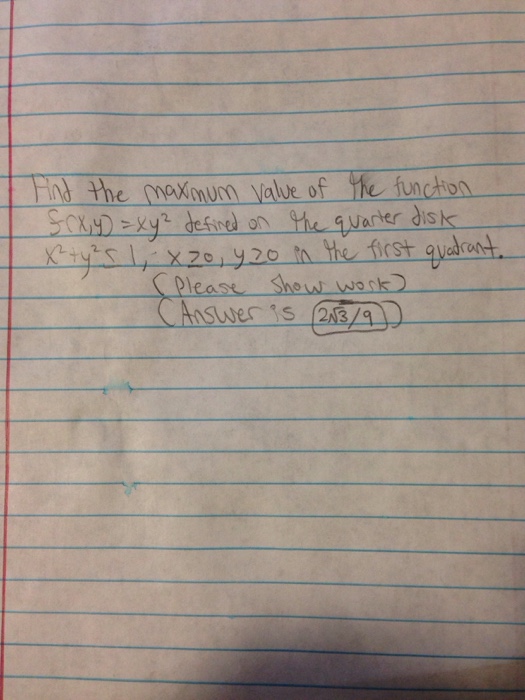 Find the maximum value of the function
f(x,y) = xy² defined on the quarter disk
x²+y² ≤ 1, x≥0, y≥0 in the first quadrant.
(Please show work)
(Answer is 2√3/9)